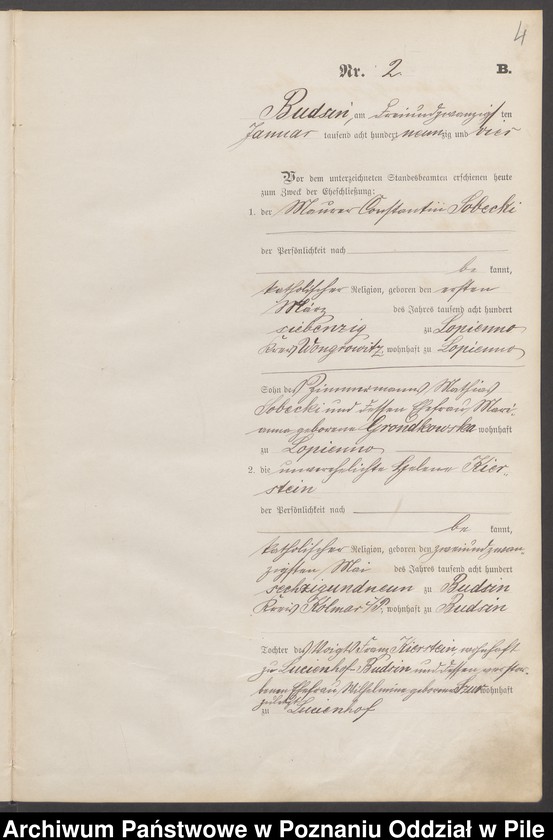 4
Nr. 2 B.
Budsin, am dreiundzwanzigsten
Januar tausend acht hundert neunzig und vier
Vor dem unterzeichneten Standesbeamten erschienen heute
zum Zweck der Eheschließung:
1. der Maurer Constantin Sobecki
der Persönlichkeit nach
be kannt,
katholischer Religion, geboren den ersten
März des Jahres tausend acht hundert
siebenzig zu Lopienno
Kreis Wongrowitz, wohnhaft zu Lopienno
Sohn des Zimmermanns Mathias
Sobecki und dessen Ehefrau Mari-
anna geborene Grondkowska wohnhaft
zu Lopienno
2. die unverehelichte Helene Kier-
stein
der Persönlichkeit nach
be kannt,
katholischer Religion, geboren den zweiundzwan-
zigsten Mai des Jahres tausend acht hundert
sechzigundneun zu Budsin
Kreis Kolmar i/P, wohnhaft zu Budsin
Tochter des Voigts Franz Kierstein, wohnhaft
zu Lucienhof-Budsin, und dessen verstor-
benen Ehefrau, Wilhelmine geborene wohnhaft
zuletzt
zu Lucienhof
Archiwum Państwowe w Poznaniu Oddział w Pile